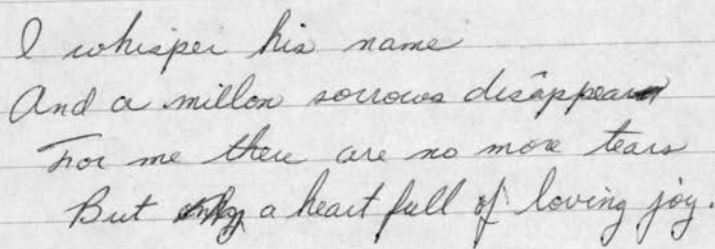 I whisper his name
And a millon sorrows disappear
For me there are no more tears
But only a heart full of loving joy.